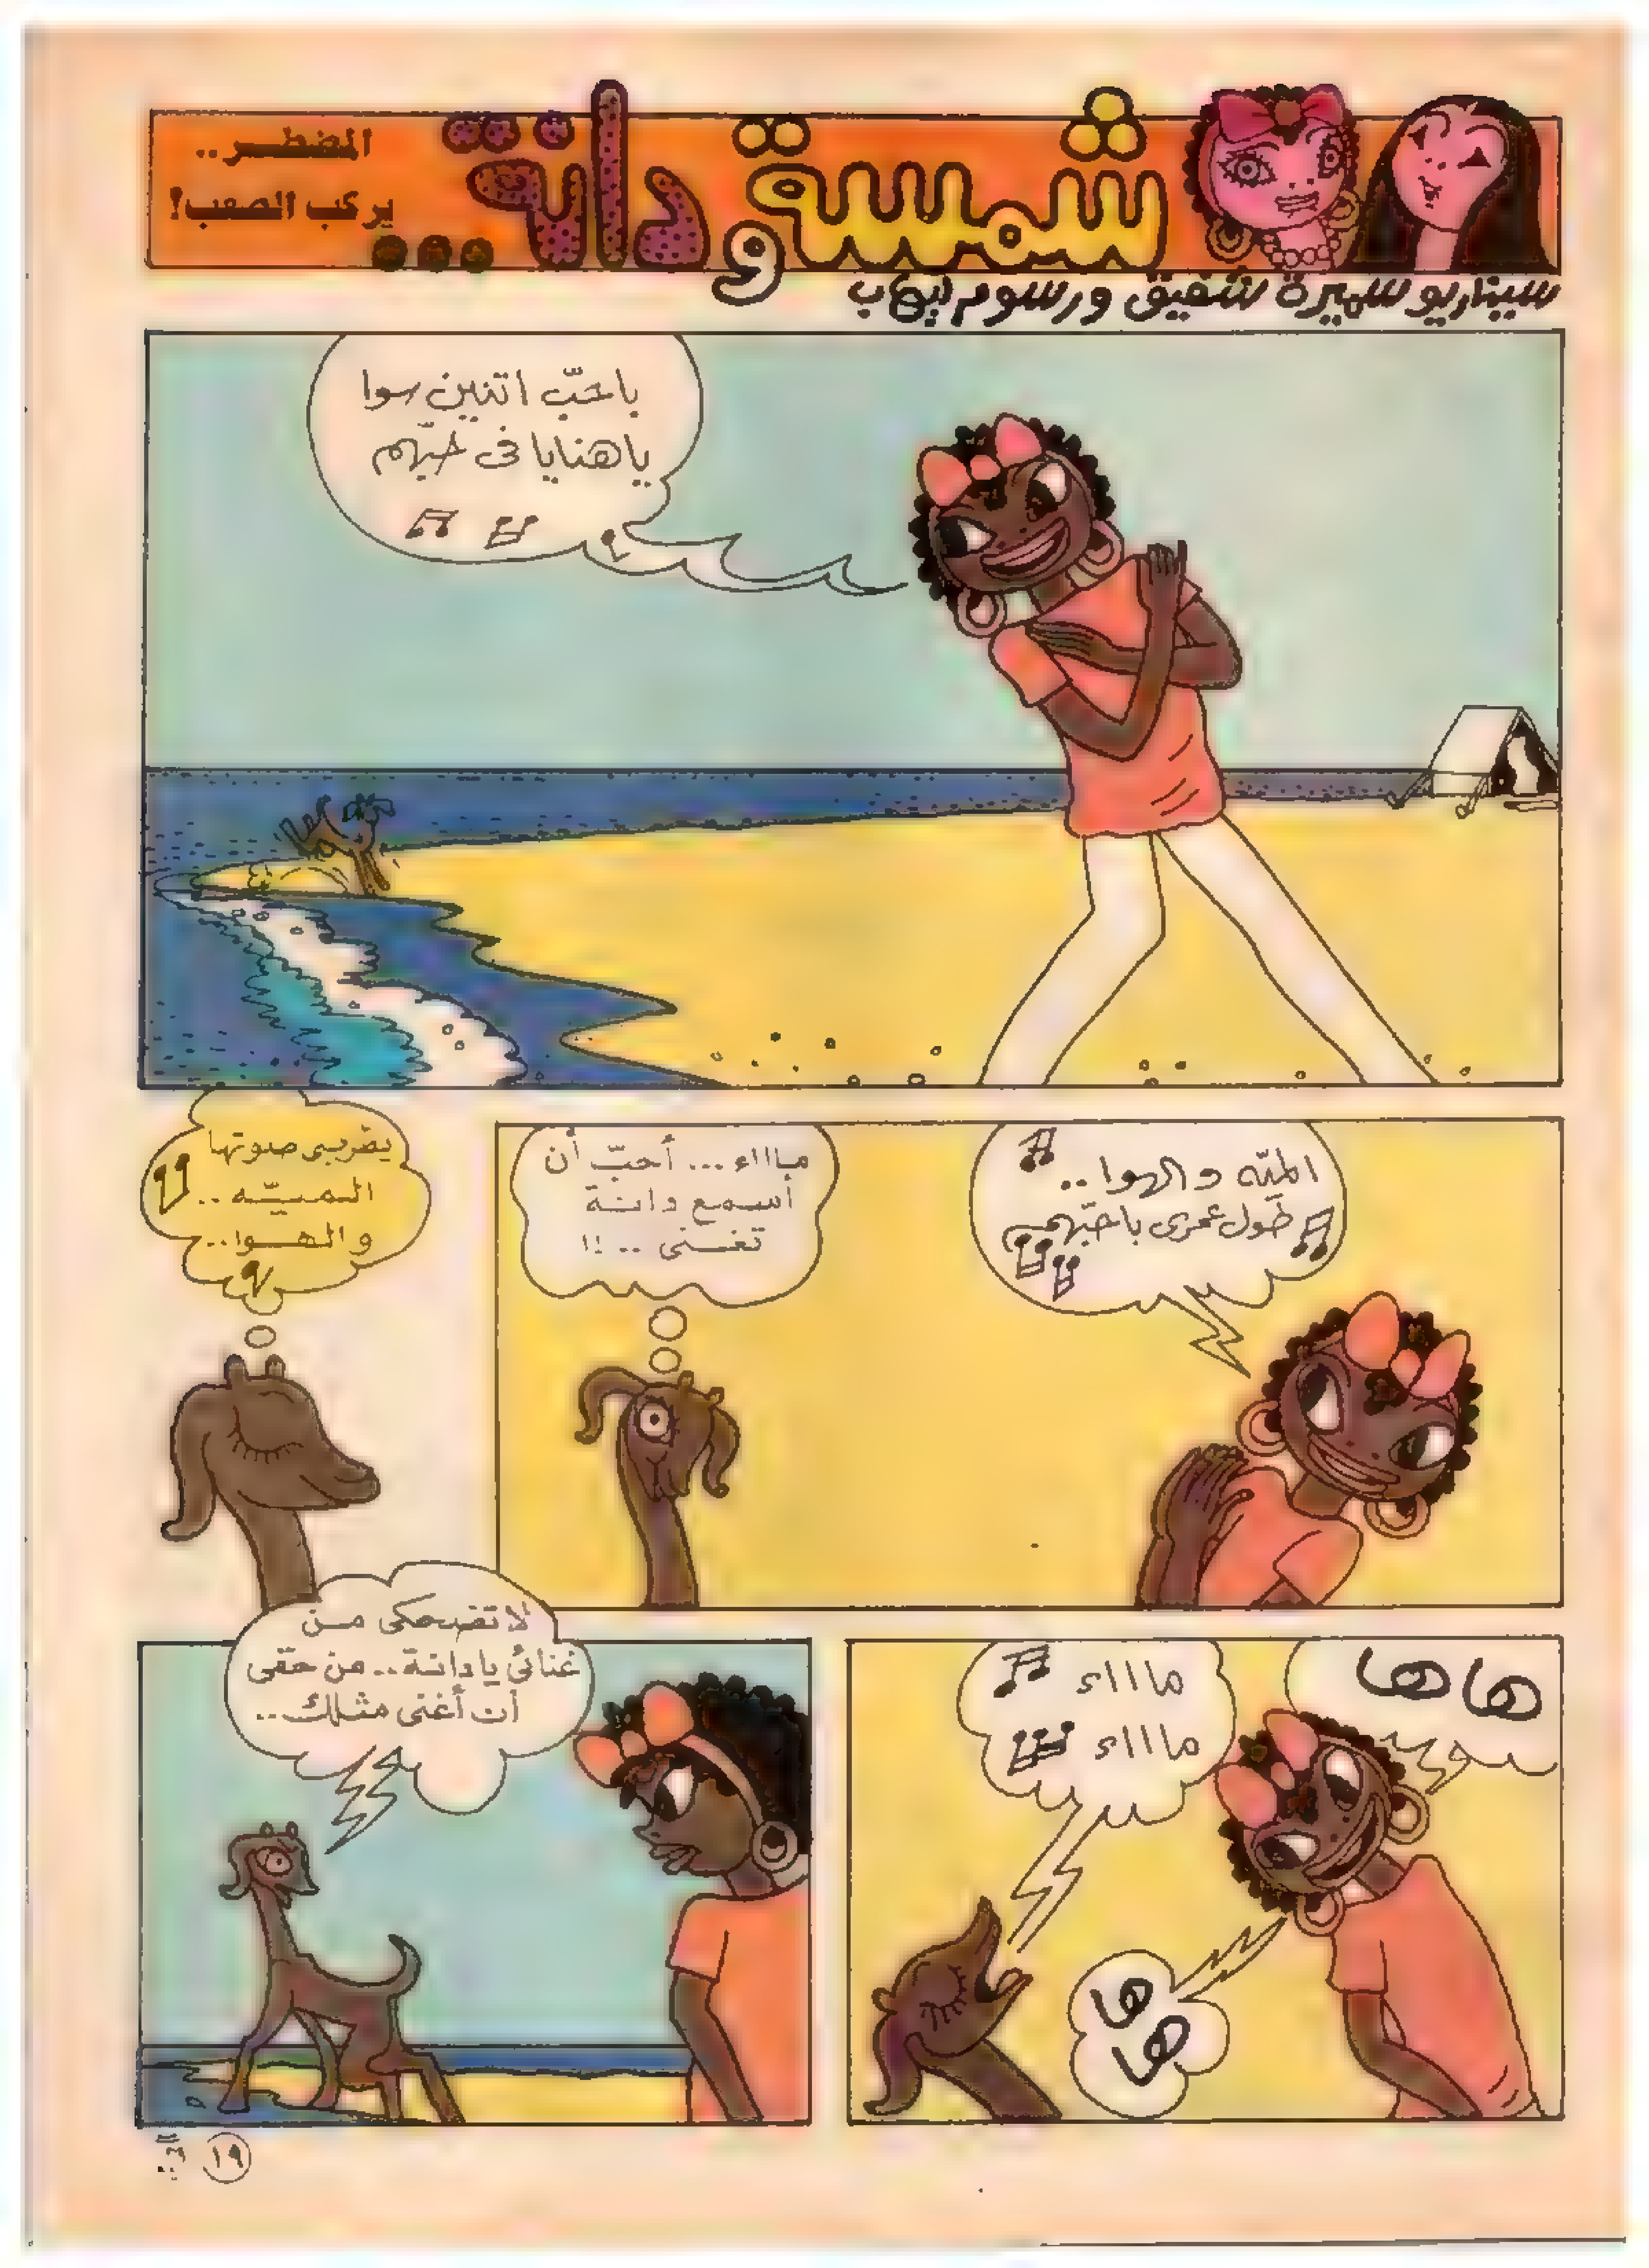 شمسة ودانة...
المضطر..
يركب الصعب!
سيناريو سميرة شفيق ورسوم إيهاب
باحبّ اتنين سوا
ياهنايا فى حبّهم
الميّه والهوا..
طول عمرى باحبّهم
مااااء... أحبّ أن
أسمع دانة
تغنى ..!!
صوتها
الميّه..
والهوا..
هاها
ماااء
ماااء
ها
ها
لا تضحكى من
غنائى يا دانة.. من حقى
أن أغنى مثلك..
١٩